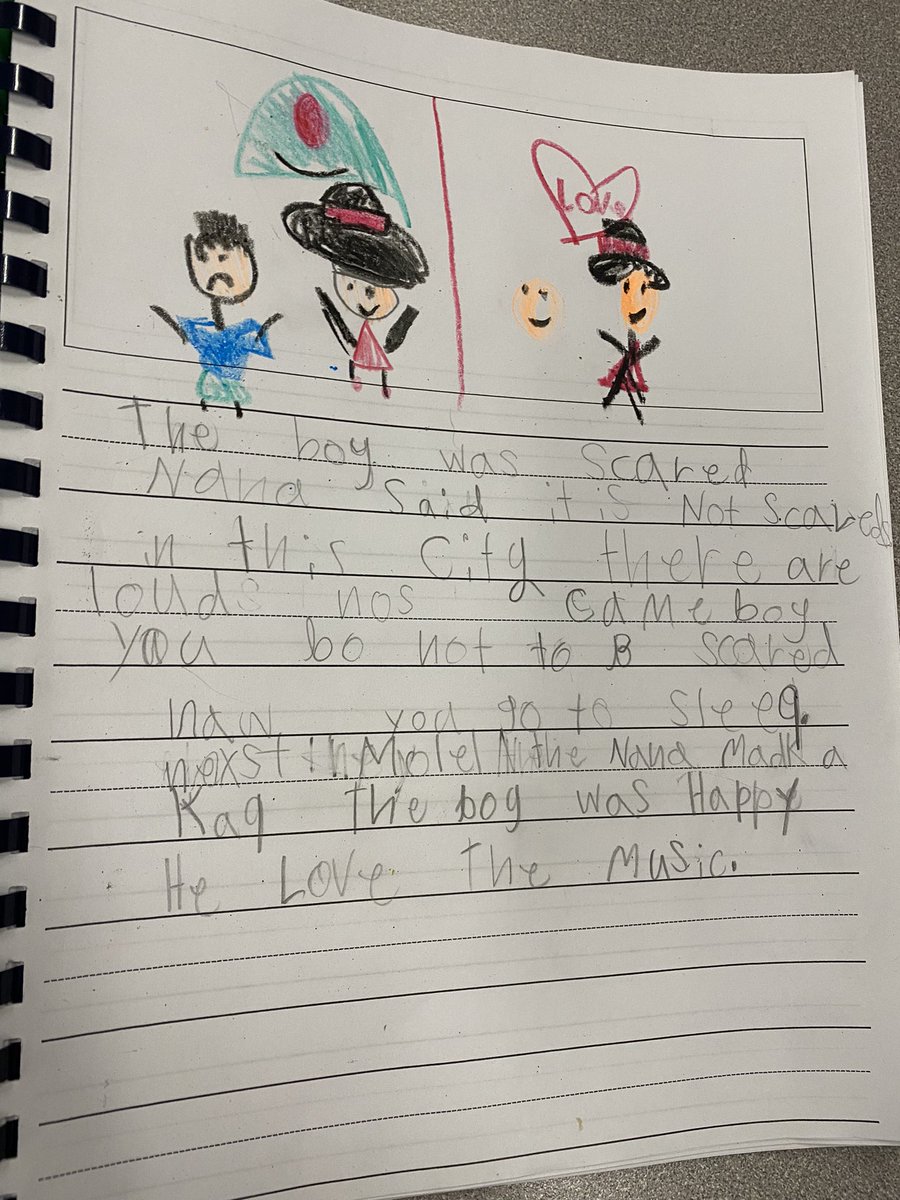 Love
The boy was scared
Nana said it is Not scareds
in this City there are
louds nos came boy
you bo not to B scared
naw you go to sleep.
nexst in the Nana Madk a
Kap the boy was Happy
He Love The Music.